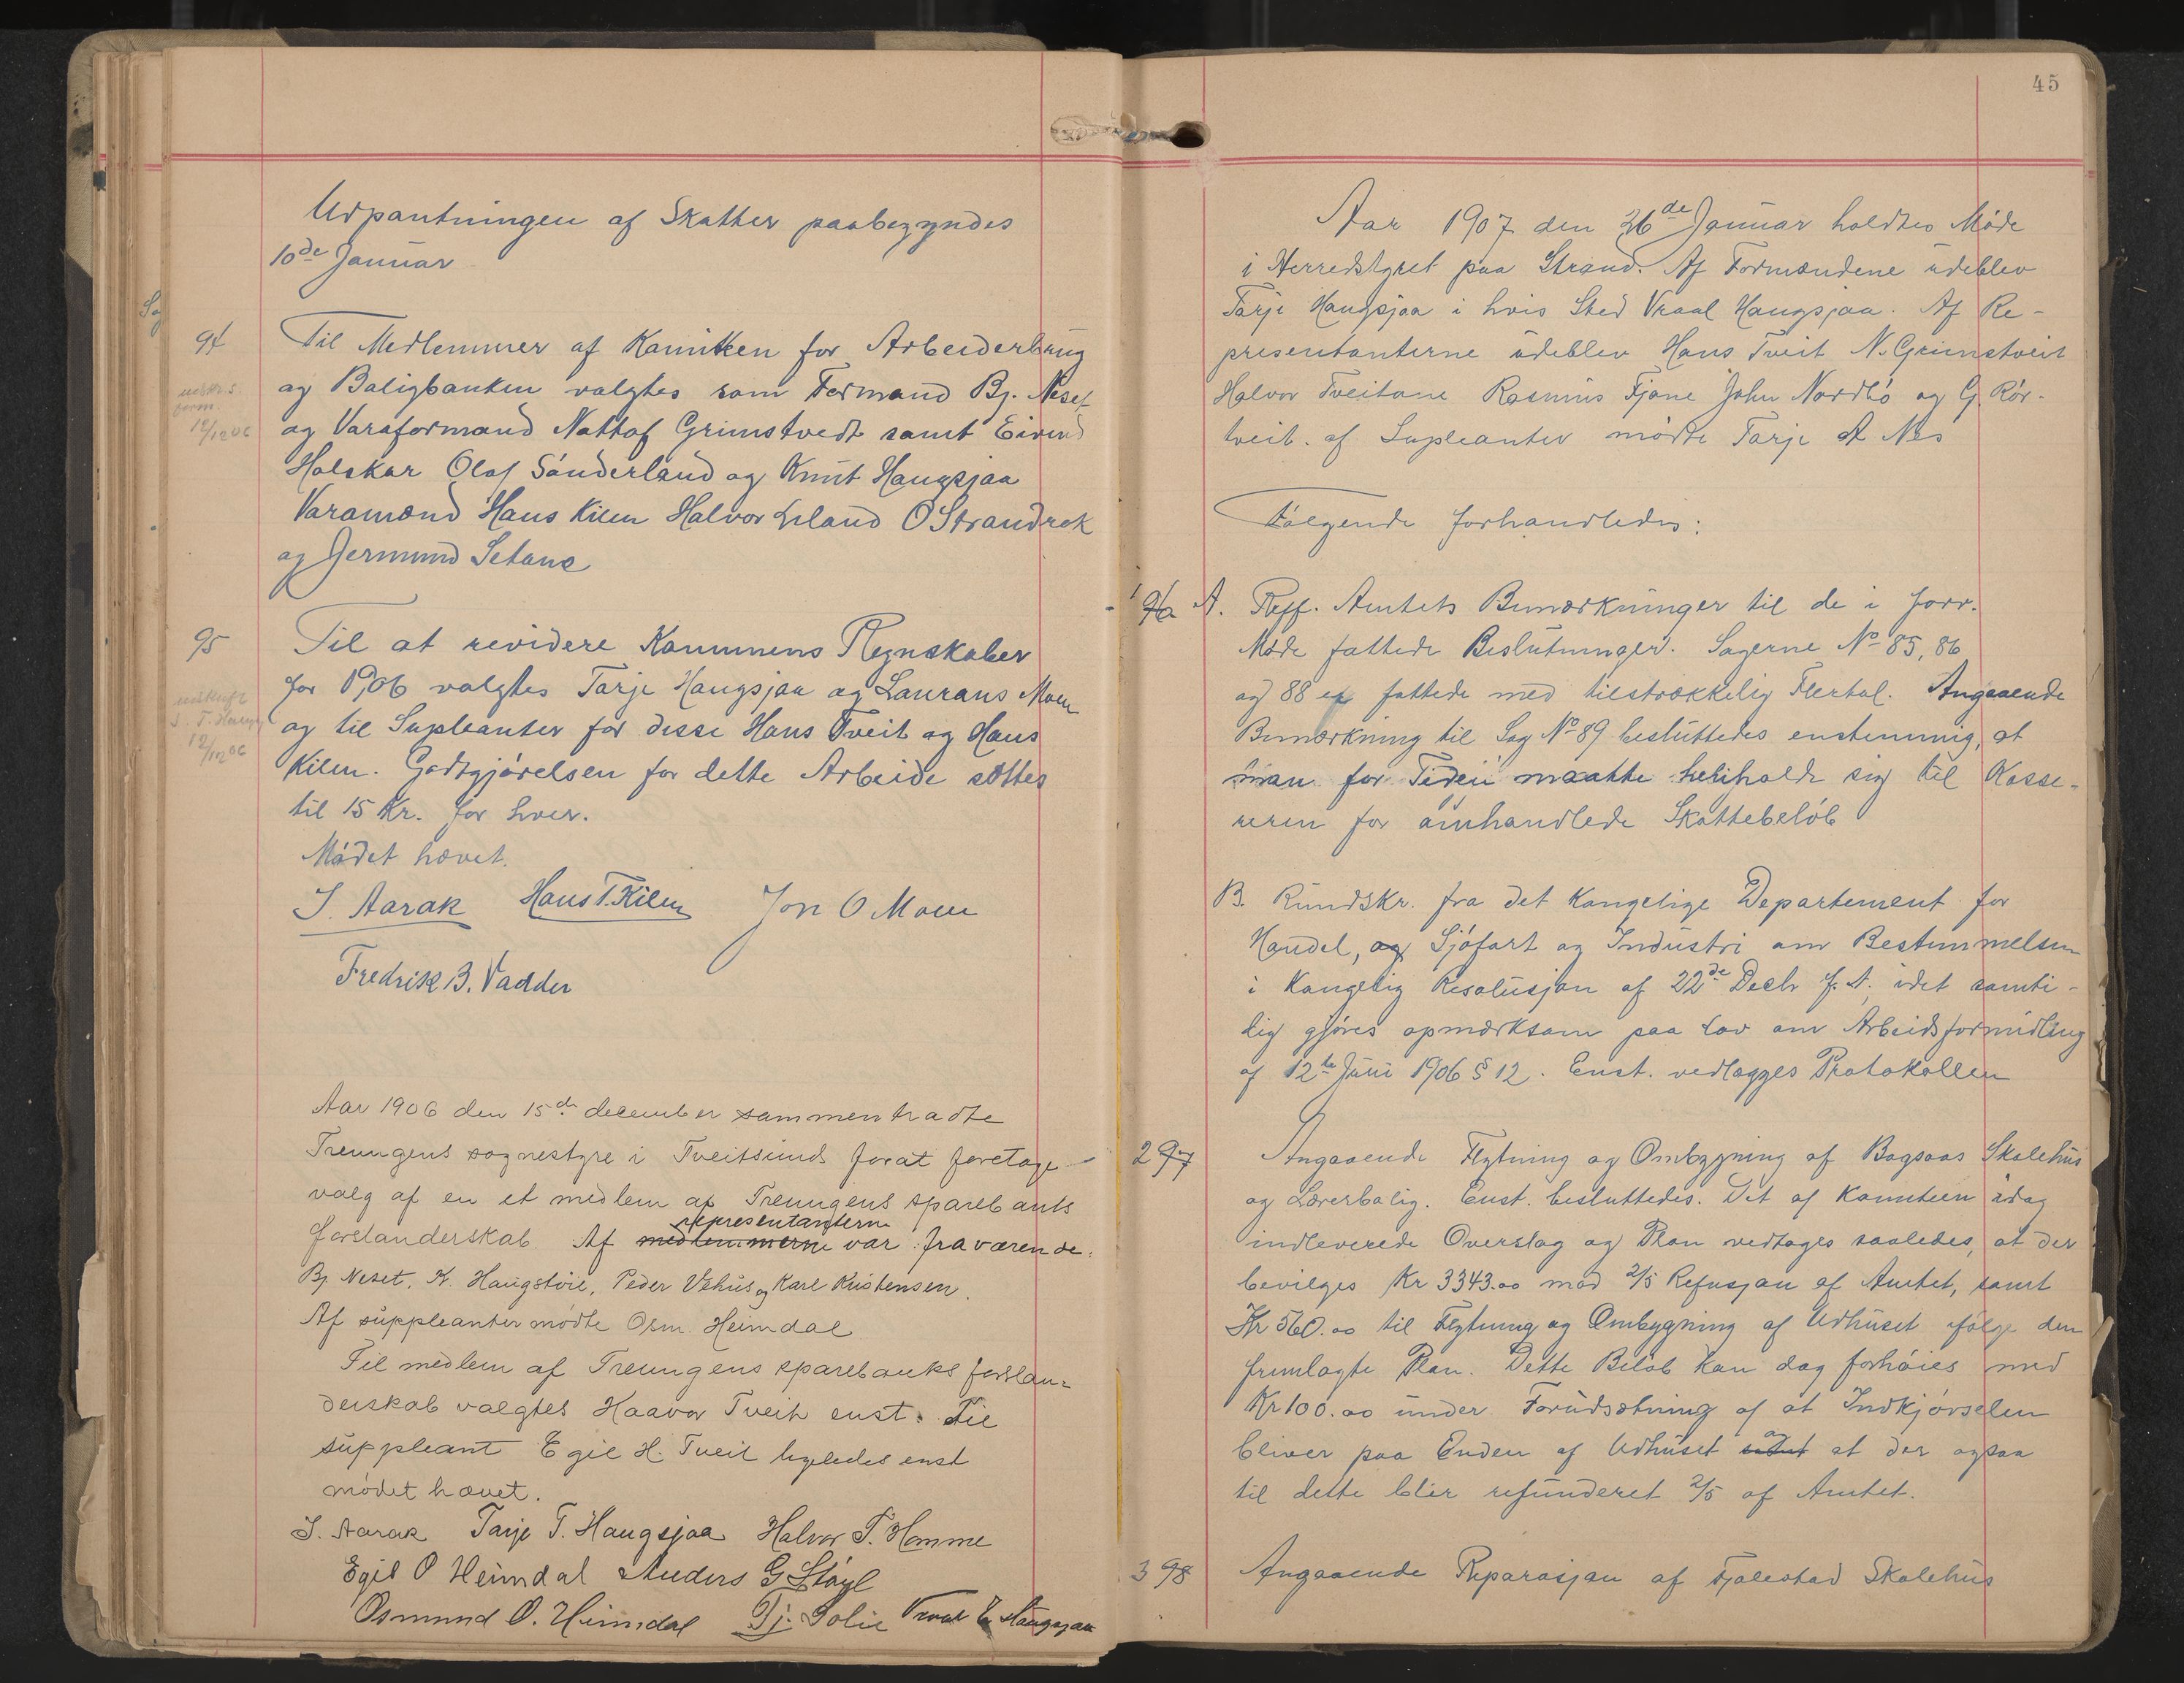 Udpantningen af Skatter paabegyndes
10de Januar
94
Til Medlemmer af Komiteen for Arbeiderbrug
og Boligbanken valgtes som Formand Bj. Neset
12/12 06
og Varaformand Nottof Grimstvedt samt Eivind
Holskar Olaf Sønderland og Knut Haugsjaa
Varamænd Hans Kilen Halvor O Strandrok
og Jermund Setane
95
Til at revidere Kommunens Regnskaber
for 1906 valgtes Tarje Haugsjaa og Laurans Moen
og til Supleanter for disse Hans Tveit og Hans
12/12 06
Kilen. Godtgjørelsen for dette Arbeide sættes
til 15 Kr. for hver.
Mødet hævet.
S. Aarak Hans T. Kilen Jon O Moen
Fredrik B. Vadder
Aar 1906 den 15de december sammentradte
Treungens sognestyre i Tveitsund forat foretage
valg af en et medlem af Treungens sparebanks
forstanderskab. Af medlemmerne representanterne var fraværende.
Bj. Neset, K. Haugstøil, Peder Vehus og Karl Kristensen.
Af suppleanter mødte Osm. Heimdal
Til medlem af Treungens sparebanks forstan-
derskab valgtes Haavor Tveit enst. Til
suppleant Egil H. Tveit ligeledes enst
mødet hævet.
S. Aarak Tarje T. Haugsjaa Halvor T. Homme
Egil O Heimdal Anders G Støyl
Osmund O. Heimdal Tj. Solli Vraal Haugsjaa
45
Aar 1907 den 26de Januar holdtes Møde
i Herredstyret paa Strand. Af Formændene udeblev
Tarje Haugsjaa i hvis Sted Vraal Haugsjaa. Af Re-
presentanterne udeblev Hans Tveit N. Grimstveit
Halvor Tveitane Rasmus Fjone John Nordbø og G. Rør-
tveit. af Supleanter mødte Tarje A Nes
Følgende forhandledes:
1 96 A. Reff. Amtets Bemærkninger til de i forr.
Møde fattede Beslutninger. Sagerne No 85, 86
og 88 er fattede med tilstrækkelig Flertal. Angaaende
Bemærkning til Sag No 89 besluttedes enstemmig, at
man for Tiden maatte henholde sig til Kasse-
reren for omhandlede Skattebeløb
B. Rundskr. fra det Kongelige Departement for
Handel, og Sjøfart og Industri om Bestemmelsen
i Kongelig Resolusjon af 22de Decbr f. A, idet samti-
dig gjøres opmærksom paa Lov om Arbeidsformidling
af 12te Juni 1906 § 12. Enst. vedlægges Protokollen
2 97
Angaaende Flytning og Ombygning af Bagsaas Skolehus
og Lærerbolig. Enst. besluttedes. Det af Komiteen idag
indleverede Overslag og Plan vedtages saaledes, at der
bevilges Kr 3343.00 mod 2/5 Refusjon af Amtet, samt
Kr 560.00 til Flytning og Ombygning af Udhuset ifølge den
fremlagte Plan. Dette Beløb kan dog forhøies med
Kr 100.00 under Forudsætning af at Indkjørselen
bliver paa Enden af Udhuset samt og at der ogsaa
til dette blir refunderet 2/5 af Amtet.
3 98 Angaaende Reparasjon af Fjalestad Skolehus